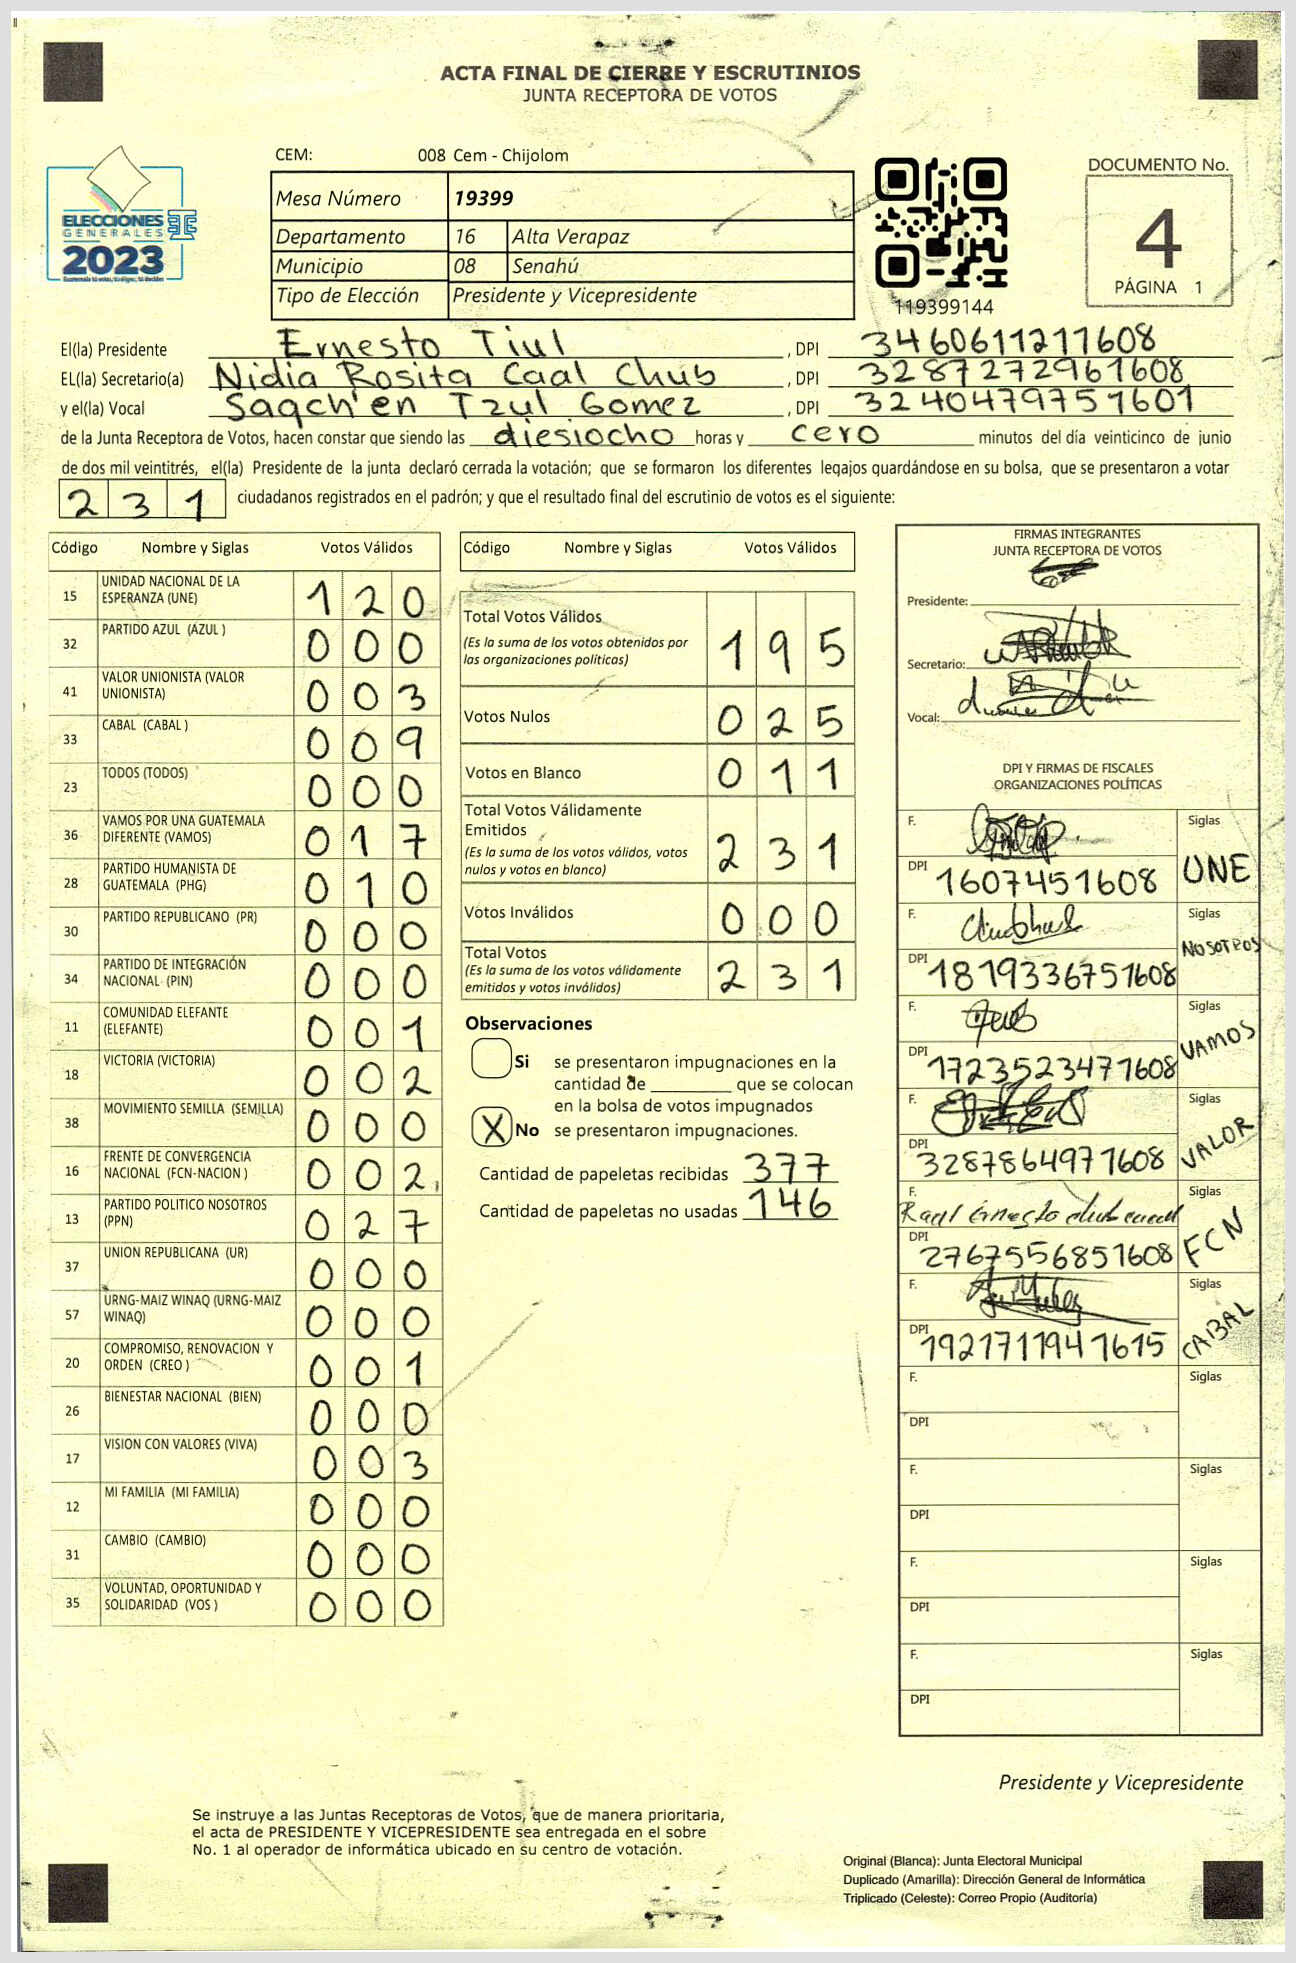 ACTA FINAL DE CIERRE Y ESCRUTINIOS
JUNTA RECEPTORA DE VOTOS
CEM: 008 Cem - Chijolom
Mesa Número 19399
Departamento 16 Alta Verapaz
Municipio 08 Senahú
Tipo de Elección Presidente y Vicepresidente
ELECCIONES
GENERALES
2023
119399144
DOCUMENTO No.
4
PÁGINA 1
El(la) Presidente Ernesto Tiul , DPI 3460611211608
EL(la) Secretario(a) Nidia Rosita Caal Chub , DPI 3287272961608
y el(la) Vocal Saqch'en Tzul Gomez , DPI 3240479751601
de la Junta Receptora de Votos, hacen constar que siendo las diesiocho horas y cero minutos del día veinticinco de junio
de dos mil veintitrés, el(la) Presidente de la junta declaró cerrada la votación; que se formaron los diferentes legajos guardándose en su bolsa, que se presentaron a votar
231 ciudadanos registrados en el padrón; y que el resultado final del escrutinio de votos es el siguiente:
Código Nombre y Siglas Votos Válidos
15 UNIDAD NACIONAL DE LA ESPERANZA (UNE) 120
32 PARTIDO AZUL (AZUL ) 000
41 VALOR UNIONISTA (VALOR UNIONISTA) 003
33 CABAL (CABAL ) 009
23 TODOS (TODOS) 000
36 VAMOS POR UNA GUATEMALA DIFERENTE (VAMOS) 017
28 PARTIDO HUMANISTA DE GUATEMALA (PHG) 010
30 PARTIDO REPUBLICANO (PR) 000
34 PARTIDO DE INTEGRACIÓN NACIONAL (PIN) 000
11 COMUNIDAD ELEFANTE (ELEFANTE) 001
18 VICTORIA (VICTORIA) 002
38 MOVIMIENTO SEMILLA (SEMILLA) 000
16 FRENTE DE CONVERGENCIA NACIONAL (FCN-NACION ) 002
13 PARTIDO POLITICO NOSOTROS (PPN) 027
37 UNION REPUBLICANA (UR) 000
57 URNG-MAIZ WINAQ (URNG-MAIZ WINAQ) 000
20 COMPROMISO, RENOVACION Y ORDEN (CREO ) 001
26 BIENESTAR NACIONAL (BIEN) 000
17 VISION CON VALORES (VIVA) 003
12 MI FAMILIA (MI FAMILIA) 000
31 CAMBIO (CAMBIO) 000
35 VOLUNTAD, OPORTUNIDAD Y SOLIDARIDAD (VOS ) 000
Código Nombre y Siglas Votos Válidos
Total Votos Válidos 195
(Es la suma de los votos obtenidos por
las organizaciones políticas)
Votos Nulos 025
Votos en Blanco 011
Total Votos Válidamente
Emitidos 231
(Es la suma de los votos válidos, votos
nulos y votos en blanco)
Votos Inválidos 000
Total Votos 231
(Es la suma de los votos válidamente
emitidos y votos inválidos)
Observaciones
Si se presentaron impugnaciones en la
cantidad de ________ que se colocan
en la bolsa de votos impugnados
X No se presentaron impugnaciones.
Cantidad de papeletas recibidas 377
Cantidad de papeletas no usadas 146
FIRMAS INTEGRANTES
JUNTA RECEPTORA DE VOTOS
Presidente:
Secretario:
Vocal:
DPI Y FIRMAS DE FISCALES
ORGANIZACIONES POLÍTICAS
F. Siglas
DPI 1607451608 UNE
F. Siglas
DPI 1819336751608 NOSOTROS
F. Siglas
DPI 1723523471608 VAMOS
F. Siglas
DPI 3287864971608 VALOR
F. Raul Ernesto Siglas
DPI 2767556851608 FCN
F. Siglas
DPI 1921711941615 CABAL
F. Siglas
DPI
F. Siglas
DPI
F. Siglas
DPI
F. Siglas
DPI
Presidente y Vicepresidente
Se instruye a las Juntas Receptoras de Votos, que de manera prioritaria,
el acta de PRESIDENTE Y VICEPRESIDENTE sea entregada en el sobre
No. 1 al operador de informática ubicado en su centro de votación.
Original (Blanca): Junta Electoral Municipal
Duplicado (Amarilla): Dirección General de Informática
Triplicado (Celeste): Correo Propio (Auditoría)